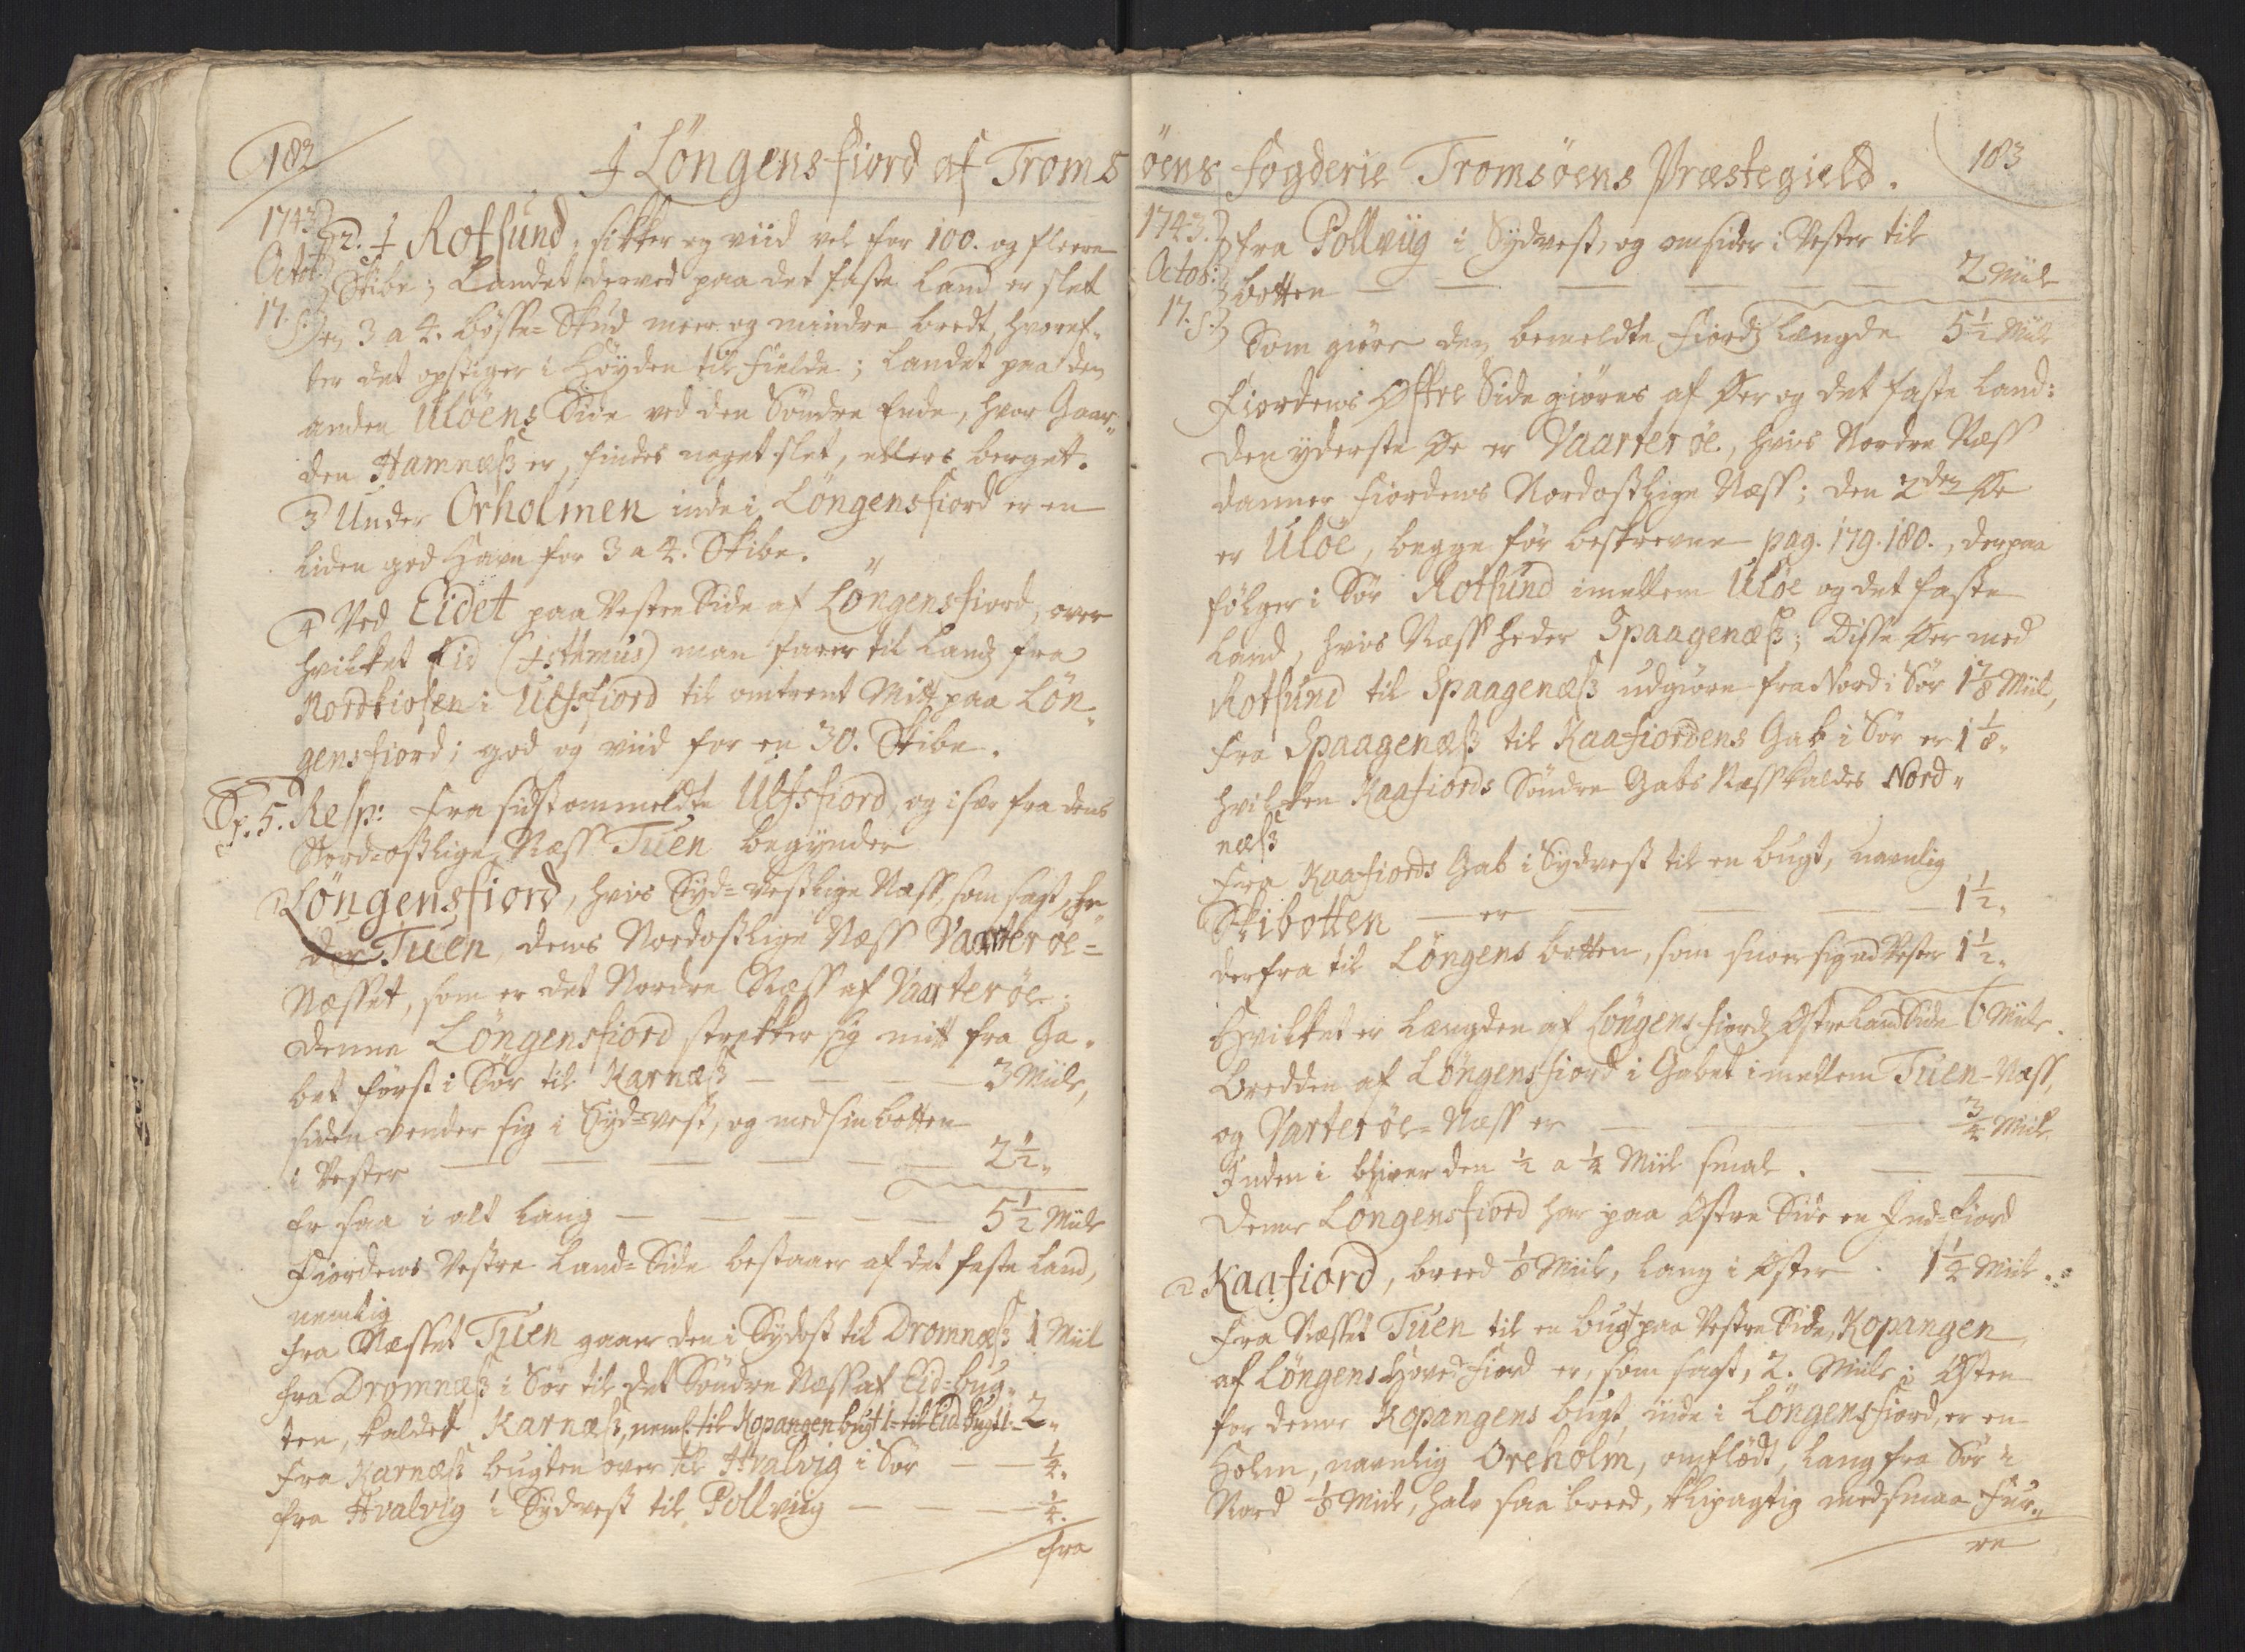 182
I Löngensfiord af Troms
1743.
Octob:
17. S.
2. I Rotsund, sikker og viid vel for 100. og fleere
Skibe; Landet derved paa det faste Land er slet
3 a 4. bösse-Skud meer og mindre bredt, hvoref-
ter det opstiger i Höyden til Fielde; Landet paa den
anden Ulöens Side ved den Söndre Ende, hvor Gaar-
den Hamnæß er, findes noget slet, ellers berget.
3 Under Orholmen inde i Löngensfiord er en
liden god Havn for 3 a 4. Skibe.
4 Ved Eidet paa Vestre Side af Löngensfiord, over
hvilket Eid (Isthmus) man farer til Lands fra
Nordkiosen i Ulfsfiord til omtrent Mit paa Lön-
gensfiord; god og viid for en 30. Skibe.
Sp. 5. Resp: Fra sidstommeldte Ulfsfiord og især fra dens
Nord-ostlige Næss Tuen begynder
1 Löngensfiord, hvis Syd-vestlige Næss, som sagt, he-
der Tuen, dens Nordostlige Næss Vaarteröe-
Næsset, som er det Nordre Næss af Vaarteröe;
denne Löngensfiord strekker sig mitt fra Ga-
bet först i Sör til Karnæß — — — 3 Miile,
siden vender sig i Syd-vest, og med sin botten
i Vester — — — — — 2½„
Er saa i alt lang — — — — — 5½ Miile
Fiordens Vestre Land-Side bestaaer af det faste Land,
nemlig
fra Næsset Tuen gaaer den i Sydost til Dromnæß 1 Miil
fra Dromnæß i Sör til det Söndre Næss af Eid-bug-
ten, kaldet Karnæß, neml. til Kopangen bugt 1- til Eid bugt 1- 2„
Fra Karnæß bugten over til Hvalvig i Sör — — ¼„
fra Hvalvig i Sydvest til Pollviig — — — ¼„
Fra
öens Fogderie Tromsöens Præstegield.
183
1743.
Octob:
17. S.
fra Pollviig i Sydvest, og omsider i Vester til
botten — — — — — 2 Miile
Som giör den bemeldte Fiords længde 5½ Miile
Fiordens Östre Side giöres af Öer og det faste Land:
den yderste Öe er Vaarteröe, hvis Nordre Næss
danner Fiordens Nordostlige Næss; den 2den Öe
er Ulöe, begge för beskrevne pag. 179. 180., derpaa
fölger i Sör Rotsund imellem Ulöe og det faste
Land, hvis Næss heder Spaagenæß; Disse Öer med
Rotsund til Spaagenæß udgiöre fra Nord i Sör 1⅞ Miil,
Fra Spaagenæß til Kaafiordens Gab i Sör er 1⅛„
hvilken Kaafiords Söndre Gabs Næss kaldes Nord-
næß
Fra Kaafiords Gab i Sydvest til en bugt, navnlig
Skibotten — er — — — — 1½„
derfra til Löngens botten, som snoer sig ad Vester 1½„
Hvilket er Længden af Löngensfiords Östre Land Side 6 Miile.
bredden af Löngensfiord i Gabet imellem Tuen-Næss,
og Varteröe-Næss er — — — ¾ Miile
Inden i bliver den ½ a ¼ Miil smal. — —
denne Löngensfiord har paa Östre Side en Ind-fiord
2 Kaafiord, breed ⅛ Miil, lang i Öster . 1¼ Miil.
fra Næsset Tuen til en bugt paa Vestre Side, Kopangen
af Löngens Hoved fiord er, som sagt, 2. Miile; Östen
for denne Kopangens bugt, inde i Löngensfiord, er en
Holm, navnlig Oreholm, omflödt, lang fra Sör i
Nord ⅛ Miil, halv saa breed, klipagtig med smaa Fur-
re